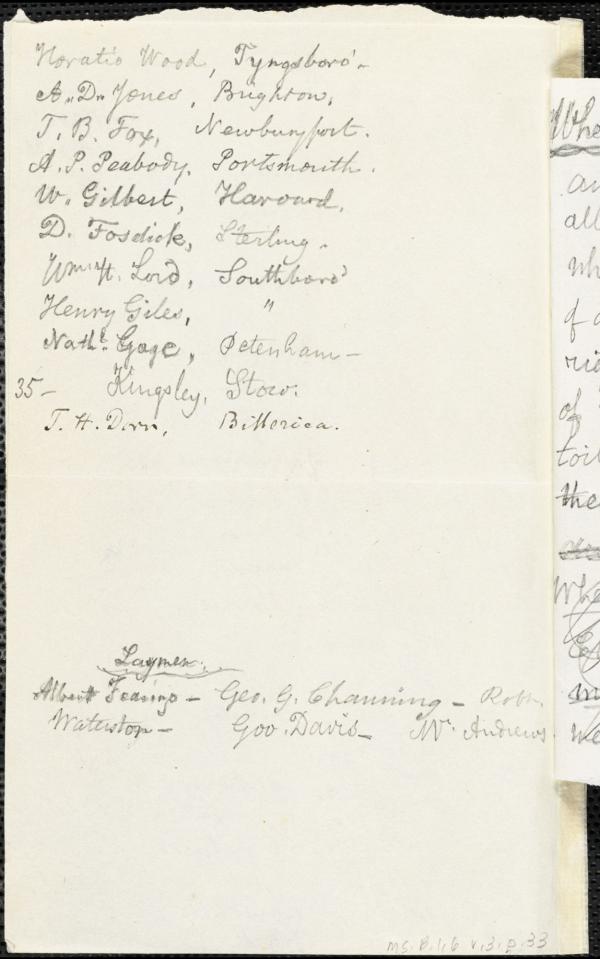 Horatio Wood, Tyngsboro'-
A. D. Jones, Brighton,
T. B. Fox, Newburyport.
A. P. Peabody, Portsmouth.
W. Gilbert, Harvard.
D. Fosdick, Sterling.
Wm. H. Lord, Southboro'
Henry Giles, "
Nathl. Gage, Petersham-
35- Kingsley, Stow.
T. H. Dorr, Billerica.
Laymen.
Albert Fearing - Geo. G. Channing - Robt.
Waterston - Gov. Davis - Mr. Andrews
Ms. B. 1.6 v.3, p. 33
all
of
the